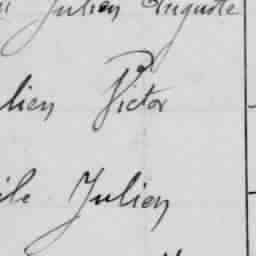 Julien Auguste
lien Victor
ile Julien